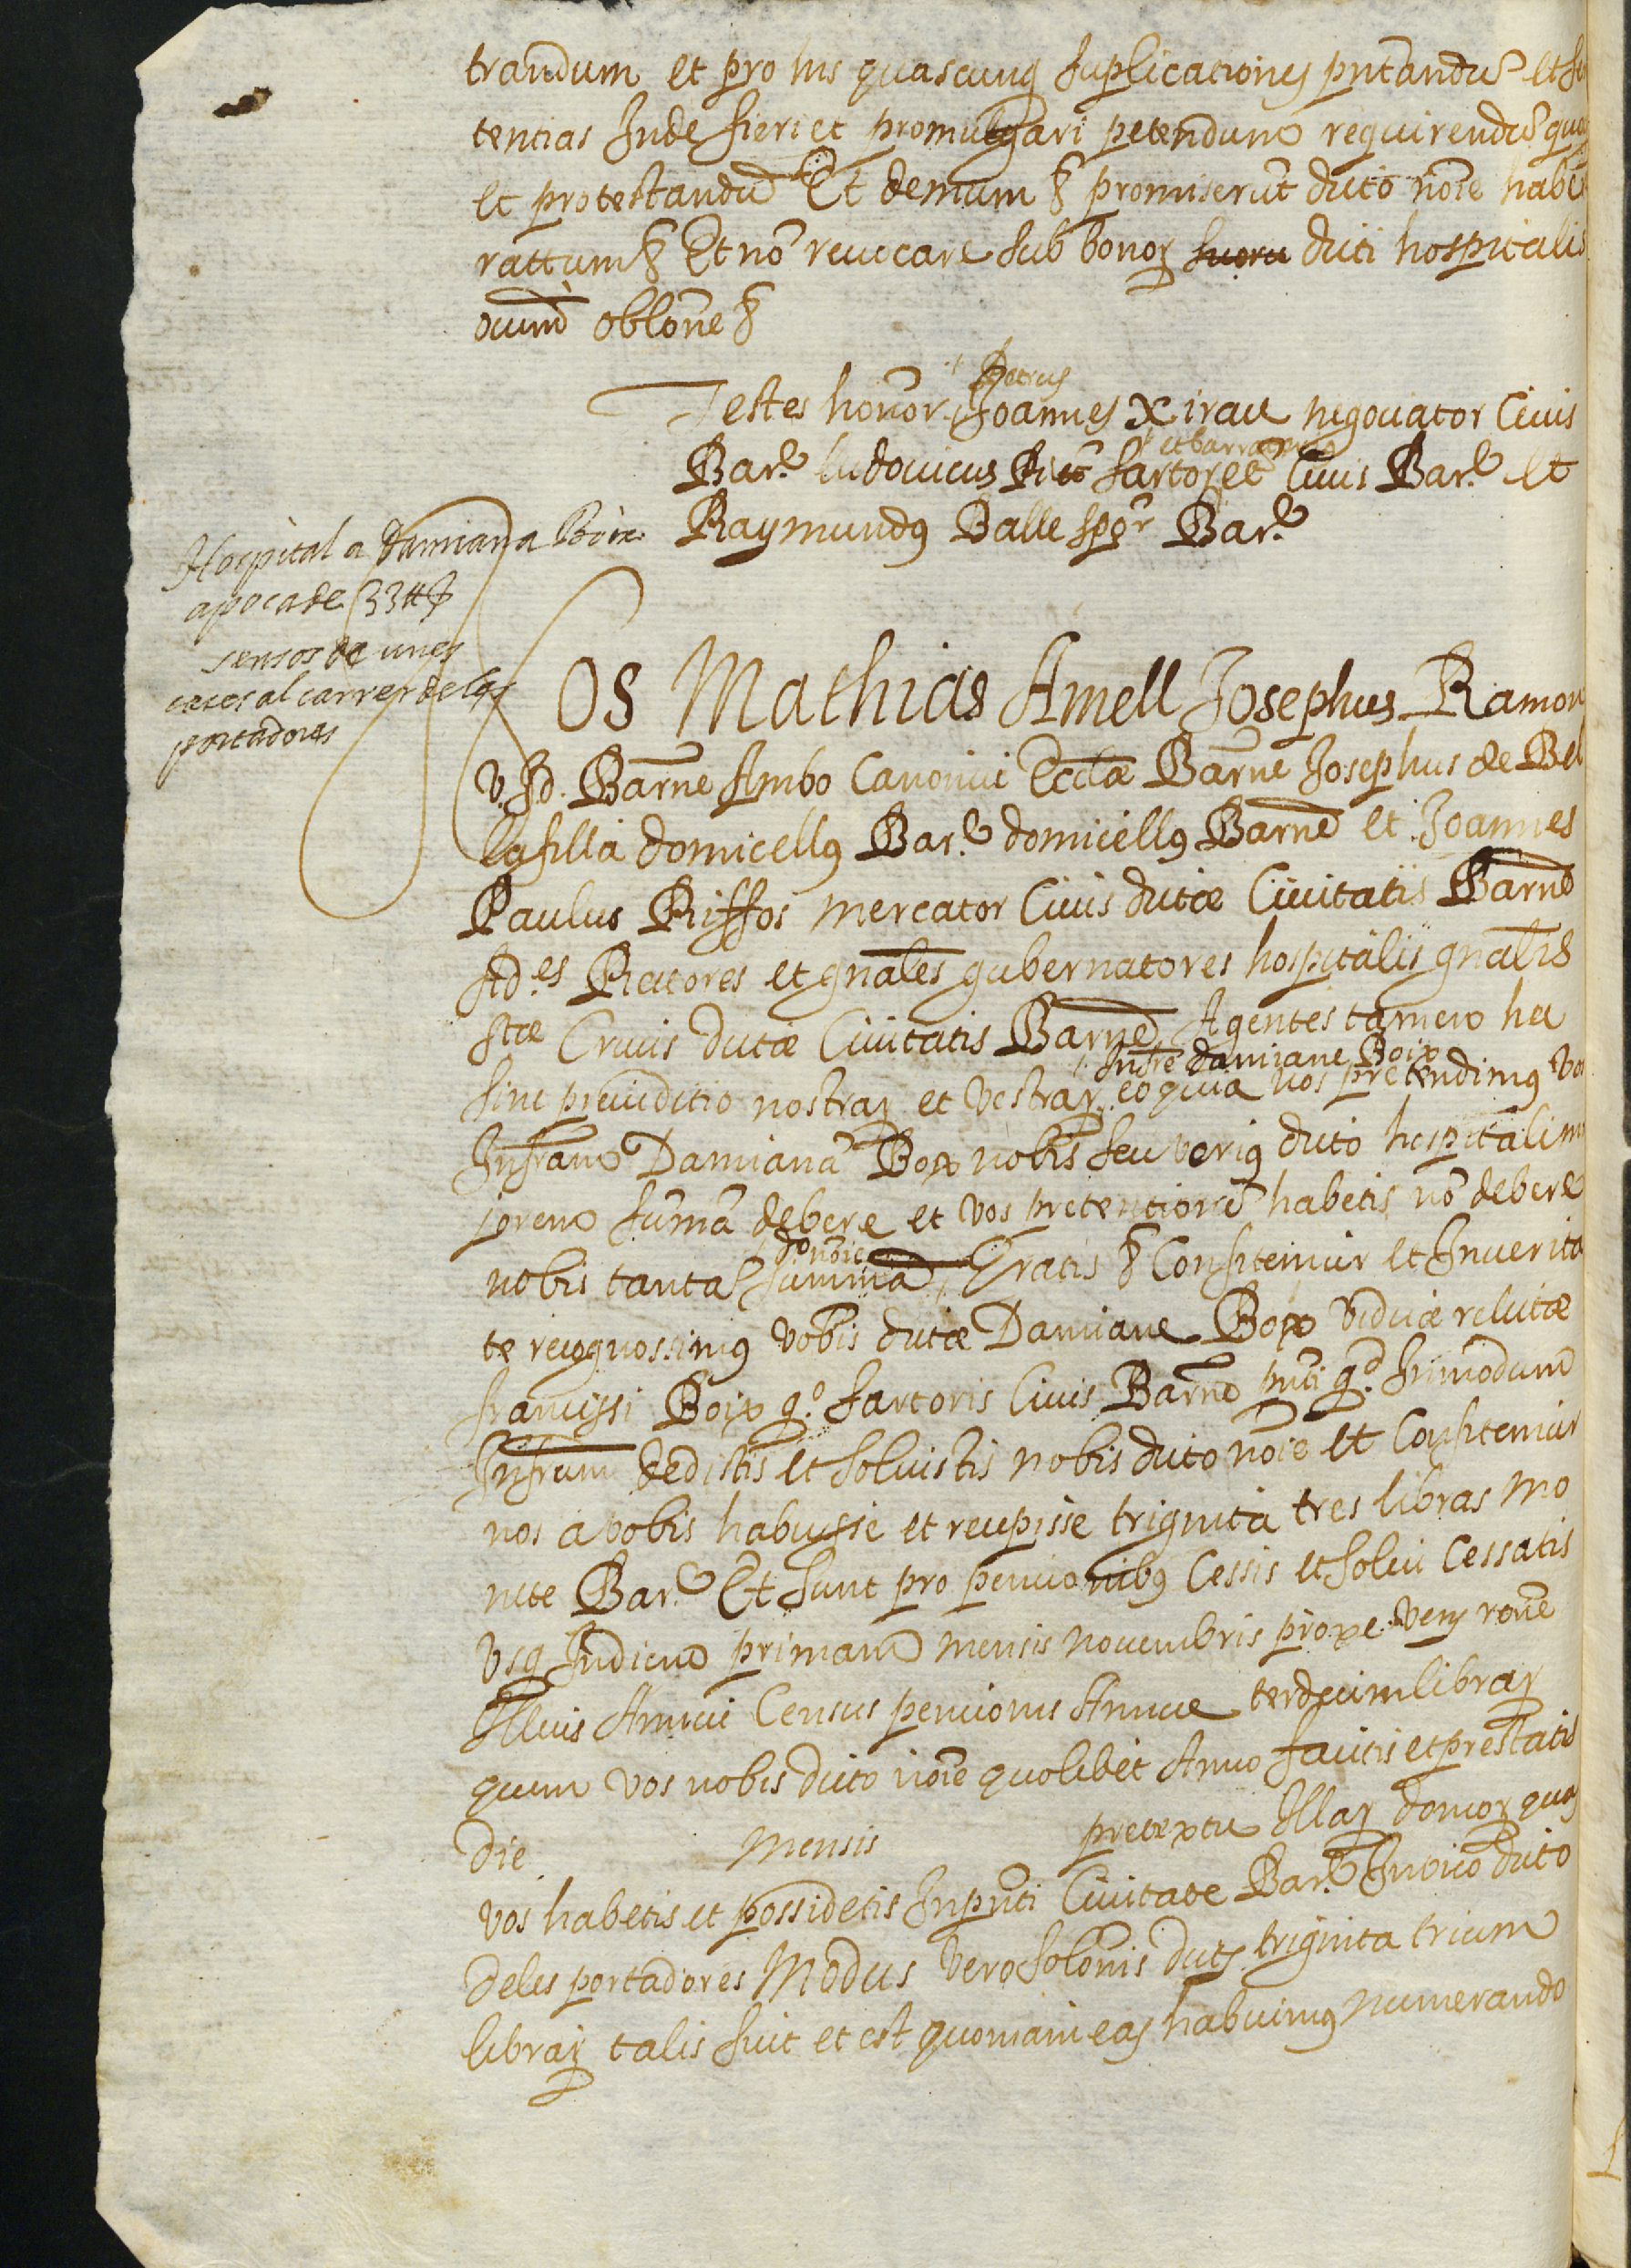 trandum et pro his quascunq suplicationes pntandu et se
tentias Inde fieri et promulgari petendum requirendu quoq
et protestandu Et demum & promiserut dicto noie habe
rattum & Et no revocare sub bonoꝝ suoru dicti hospitalis
oium oblone &
Petrus
Testes honor Joannes Xirau negociator Civis
et barra
Bar.e ludovicus sartor et Civis Bar.e et
Raymundus Balle spor Bar.e
Hospital a Damiana Boix
apoca de 33 ℔
sensos de unes
cases al carrer de las
portadores
Nos Mathias Amell Josephus Ramon
V.J.d. Barne Ambo Canonici Eccłæ Barne Josephus de Bel
lafilla domicellus Bar.e domicellus Barne et Joannes
Paulus Riffos mercator Civis dictæ Civitatis Barne
Ad.es Rectores et gnales gubernatores hospitalis gnalis
Stæ Crucis dictæ Civitatis Barne Agentes tamen hec
Infre damiane Boix
sine preiuditio nostraꝝ et vestraꝝ eo quia nos pretendimus vos
Infram Damiana Boix nobis seu verius dicto hospitali ma
jorem suma debere et vos pretentione habetis no debere
do noie
nobis tanta summa, Gratis & Confitemur et In verita
te recognossimus vobis dictæ Damiane Boix viduæ relictæ
francissi Boix q.o sartoris Civis Barne pnti qd In modum
Infrum dedistis et solvistis nobis dicto noie et Confitemur
nos a vobis habuisse et recepisse triginta tres libras mo
nete Bar.e Et sunt pro pencionibus Cessis et solui Cessatis
usq In diem primam mensis novembris proxe. vens rone
Illius Annui Census pencionis Annue terdecim libraꝝ
quem vos nobis dicto noie quolibet Anno facitis et prestatis
die mensis pretextu Illaꝝ domoꝝ quas
vos habetis et possidetis In pnti Civitate Bar.e In vico dicto
deles portadores Modus vero solonis dictꝝ triginta trium
libraꝝ talis fuit et est quoniam eas habuimus numerando